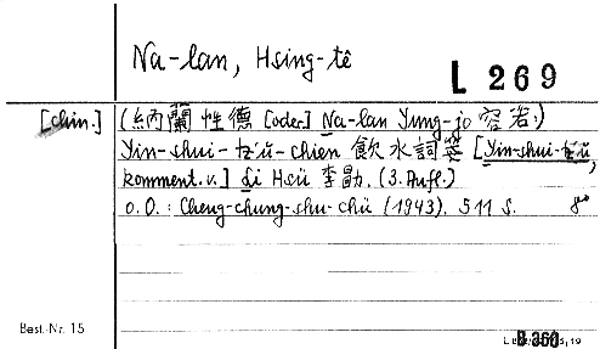 Na-lan, Hsing-tê
L 269
[chin.] (納蘭性德 [oder] Na-lan Yung-jo 容若.)
Yin-shui-tz'ŭ-chien 飲水詞箋 [Yin-shui-tz'ŭ,
komment. v.] Li Hsü 李勖. (3. Aufl.)
o. O.: Cheng-chung-shu-chü (1943). 511 S. 8°
Best.-Nr. 15
B 360